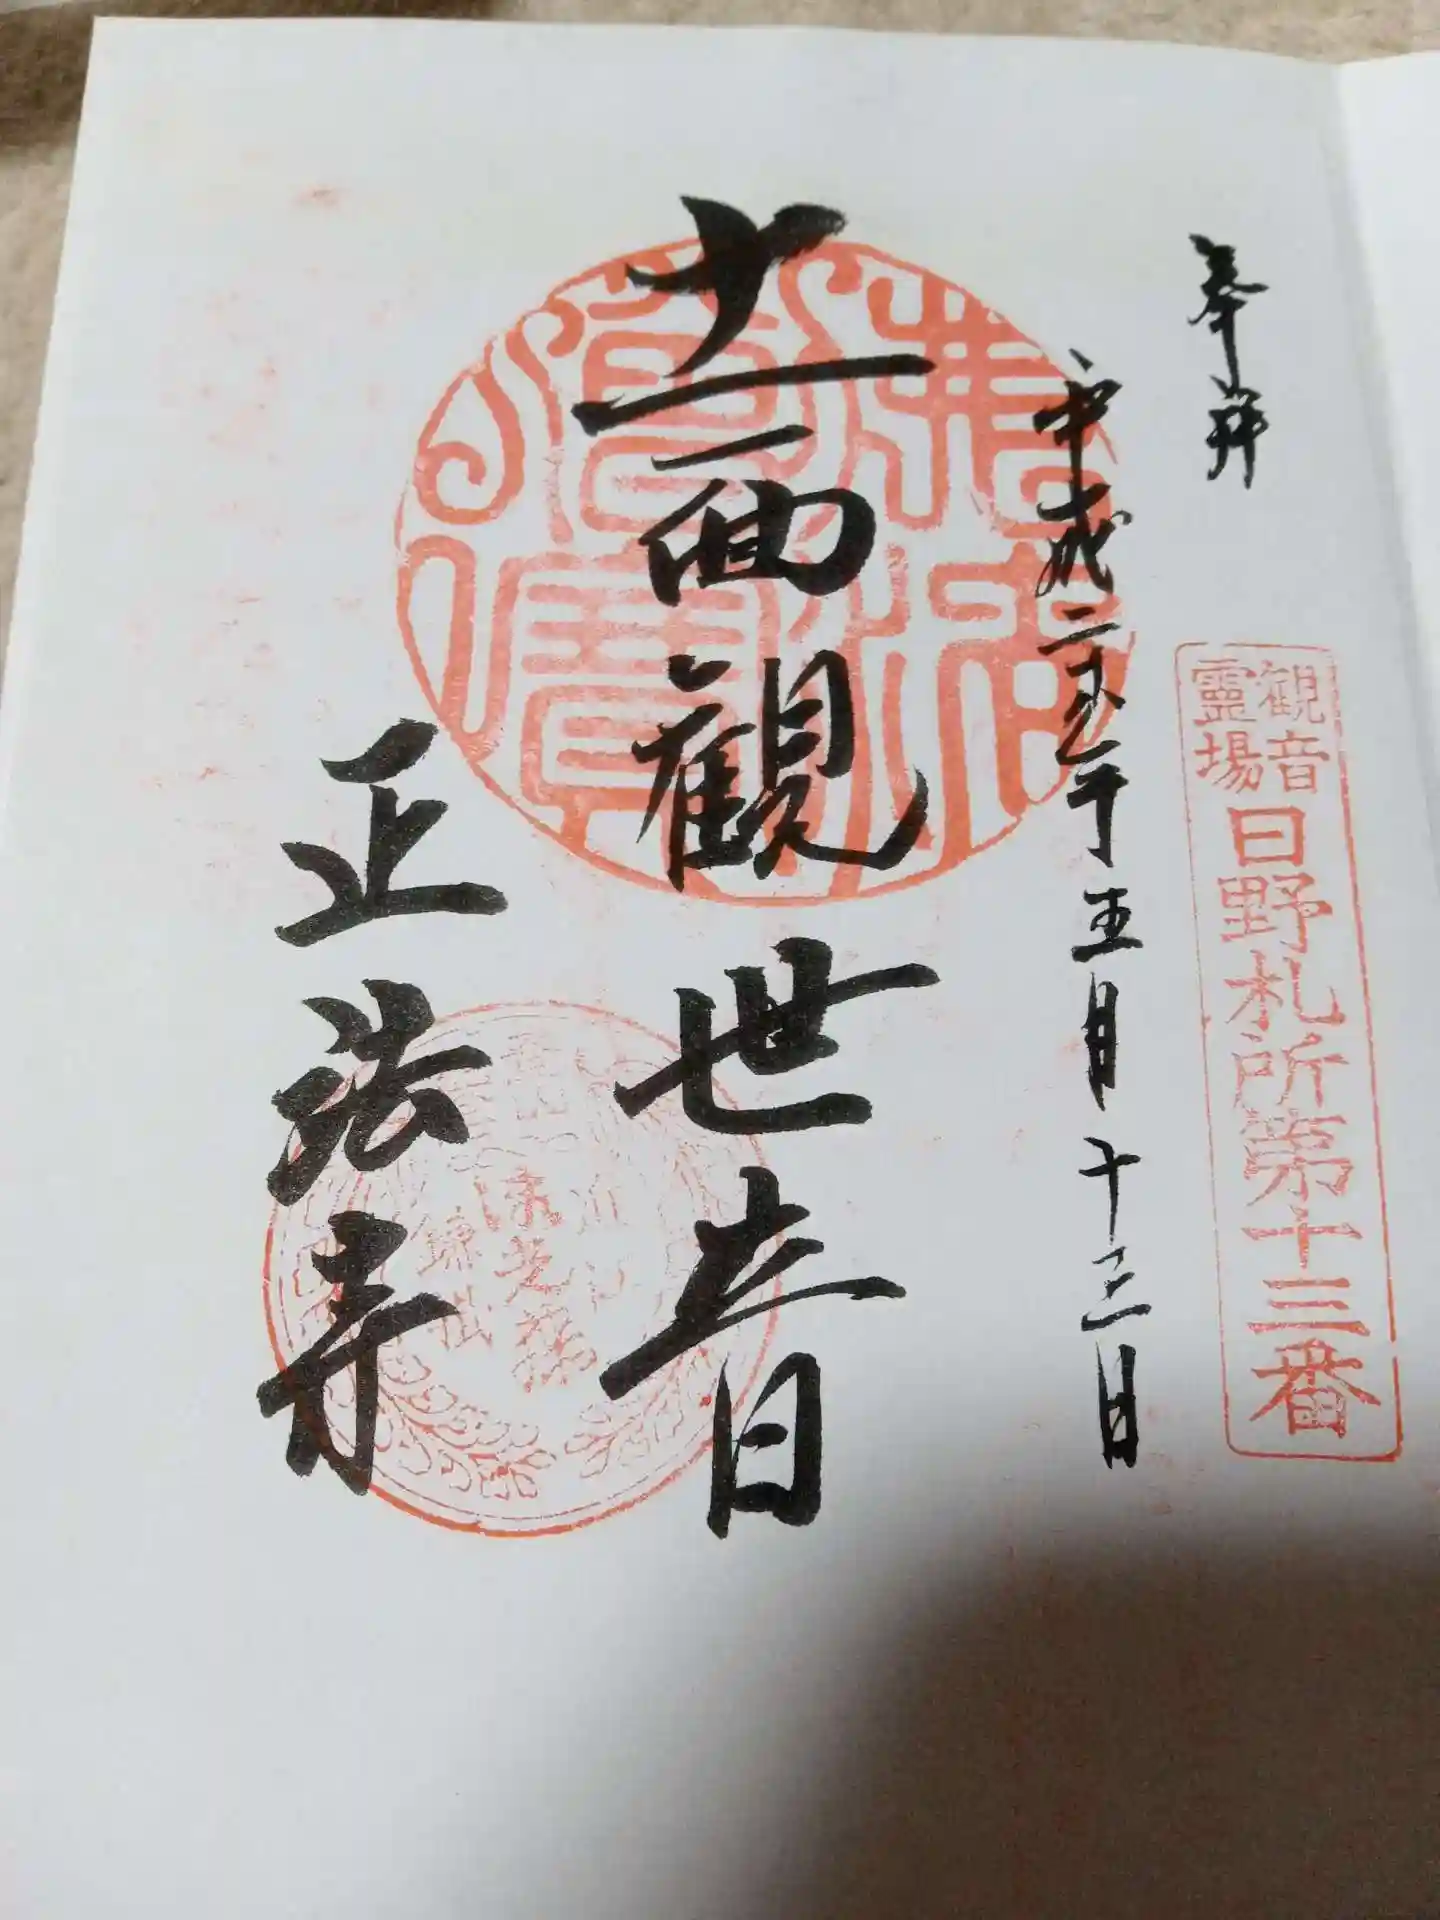 奉拝
観音
霊場
日野札所第十三番
平成二十五年五月十三日
十一面観世音
正法寺